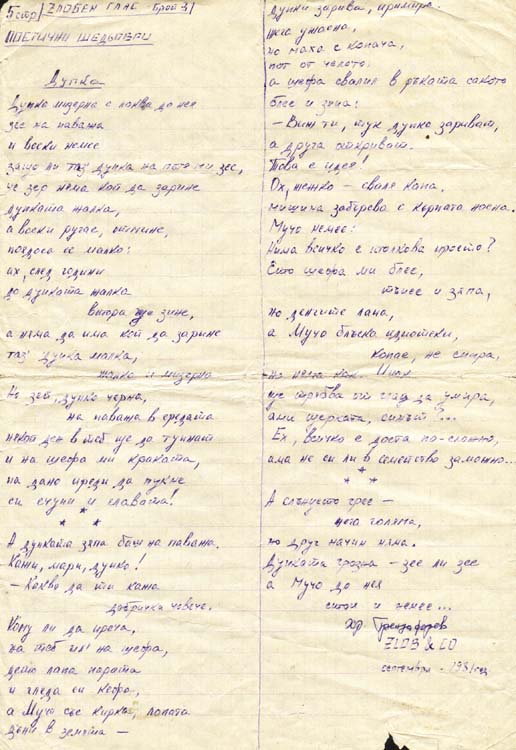 5 стр/ ZЛОБЕН ГЛАС - брой 3/
ПОЕТИЧНИ ШЕДЬОВРИ
Дупка
Дупка мизерна с локва до нея
зее на паважа
и всеки немее
защо ли таз дупка на пътя ми зее,
че зер нема кой да зарине
дупката жалка,
а всеки ругае, отмине,
поядоса се малко:
ах, след години
до дупката жалка
втора ще зине,
а няма да има кой да зарине
таз дупка малка,
жалка и мизерна
Не зей, дупко черна,
на паважа в средата
някой ден в теб ще до тупнат
и на шефа ми краката,
па дано преди да пукне
си счупи и главата!
* * *
А дупката зяпа баш на паважа.
Кажи, мари, дупко!
- Какво да ти кажа
добрички човече.
Кому ли да преча,
на теб ил' на шефа,
дето лапа парата
и гледа си кефа,
а Мучо със кирка, лопата
дъни в земята -
дупки зарива, примира.
жега ужасна,
но маха с копача,
пот от челото;
а шефа свалил в ръката сакото
блее и зяпа:
- Виж ти, тук дупка зариват,
а друга откриват.
Това е идея!
Ох, тежко - сваля капа.
мишина забърсва с кърпата мазна.
Мучо немее:
Нима всичко е толкова просто?
Ето шефа ми блее,
тъпее и зяпа,
но денгите лапа,
а Мучо блъска идиотски,
копае, не спира,
ще трябва от глад да умира,
ами щерката, синът?...
Ех, всичко е доста по-сложно,
ама не си ли в семейство заможно...
* * *
А слънцето грее -
жега голяма,
по друг начин няма.
Дупката грозна - зее ли зее
а Мучо до нея
стои и немее...
ZLOB & CO
септември - 1981 год